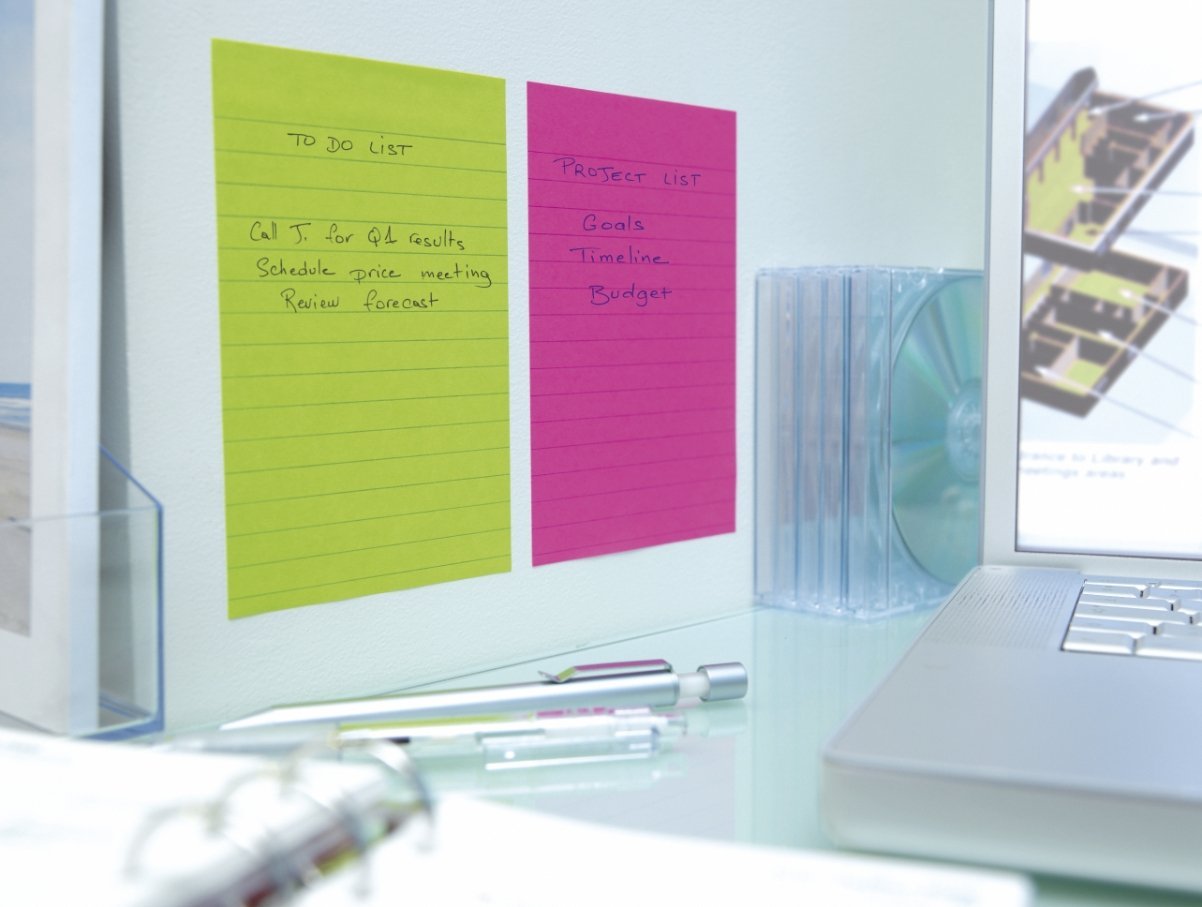 TO DO LIST
Call J. for Q1 results
Schedule price meeting
Review forecast
PROJECT LIST
Goals
Timeline
Budget
rance to Library and
eetings areas